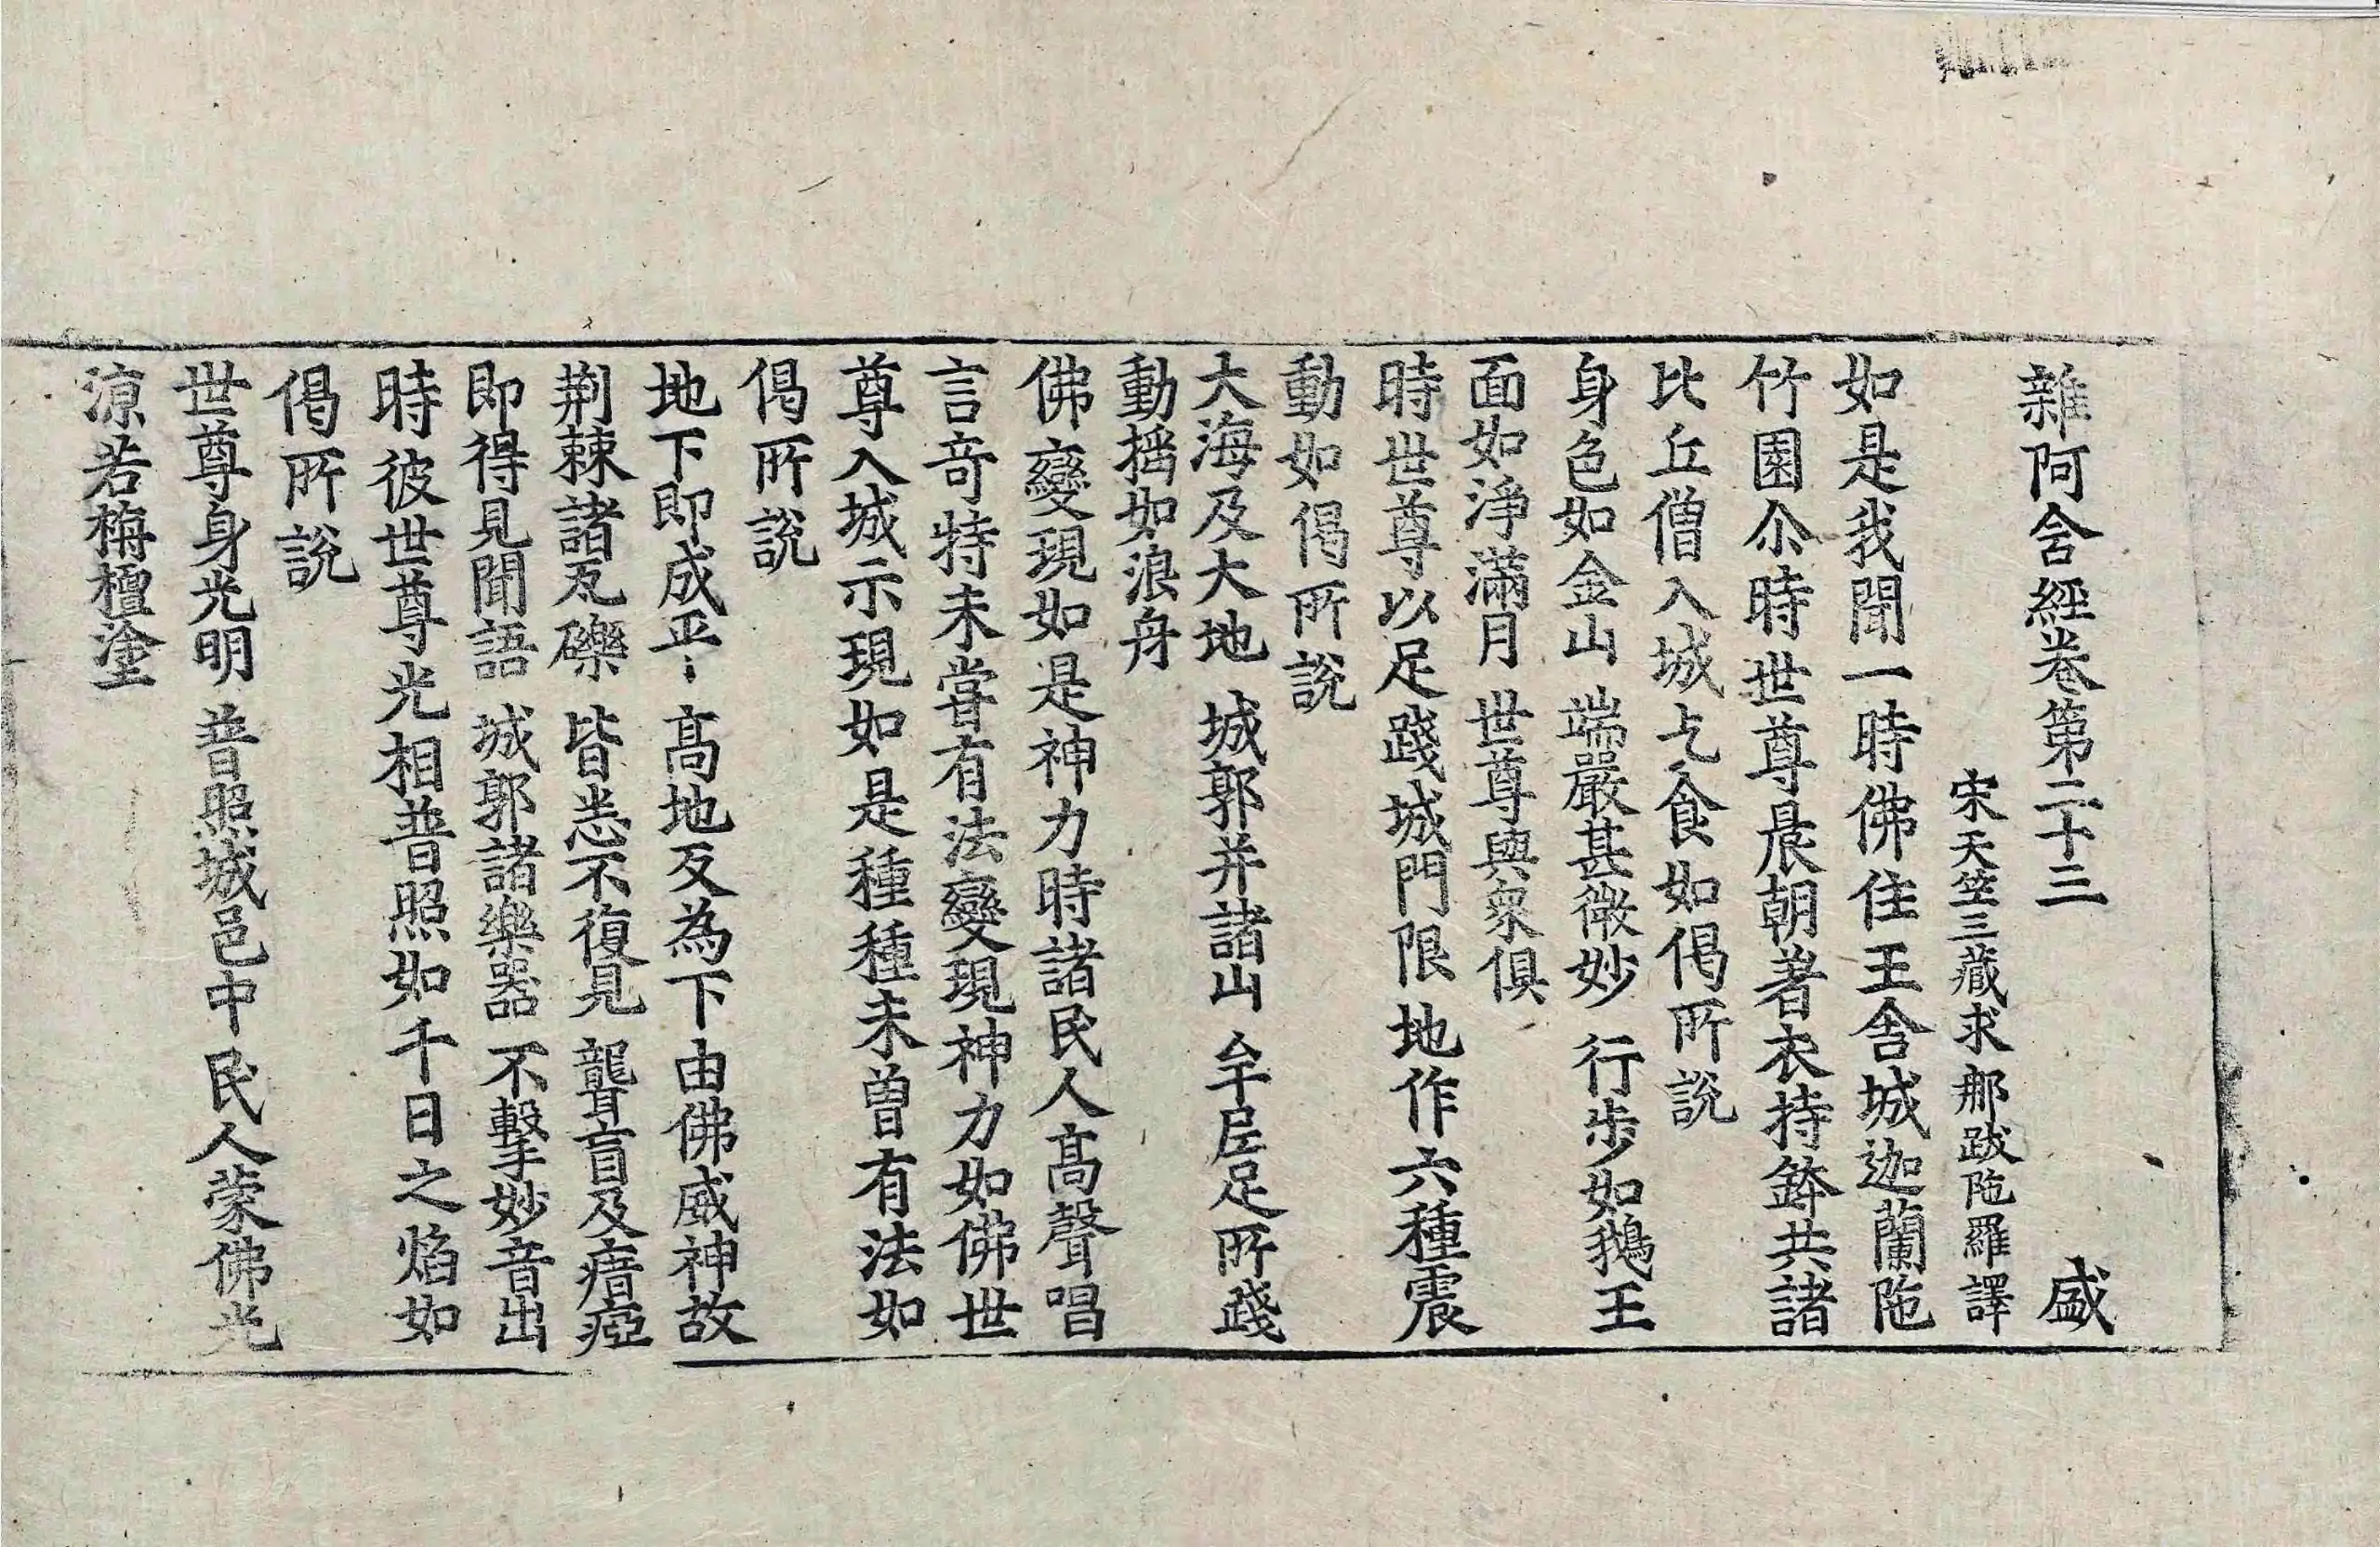 雜阿含經卷第二十三 盛
宋天竺三藏求那跋陁羅譯
如是我聞一時佛住王舍城迦蘭陁
竹園尒時世尊晨朝著衣持鉢共諸
比丘僧入城乞食如偈所說
身色如金山 端嚴甚微妙 行步如鵝王
面如淨滿月 世尊與衆俱
時世尊以足踐城門限地作六種震
動如偈所說
大海及大地 城郭并諸山 牟尼足所踐
動搖如浪舟
佛變現如是神力時諸民人髙聲唱
言竒特未甞有法變現神力如佛世
尊入城示現如是種種未曽有法如
偈所說
地下即成平 髙地反為下 由佛威神故
荆棘諸瓦礫 皆悉不復見 聾盲及瘖瘂
即得見聞語 城郭諸樂器 不擊妙音出
時彼世尊光相普照如千日之焰如
偈所說
世尊身光明 普照城邑中 民人蒙佛光
涼若栴檀塗